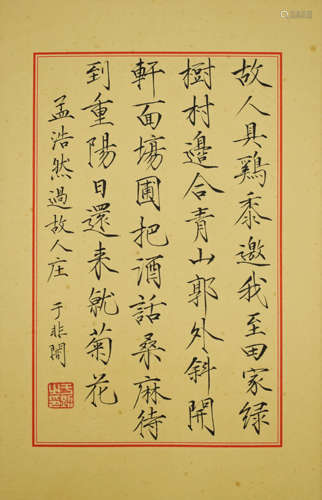 故人具鷄黍邀我至田家緑
樹村邊合青山郭外斜開
軒面場圃把酒話桑麻待
到重陽日還来就菊花
孟浩然過故人庄 于非闇